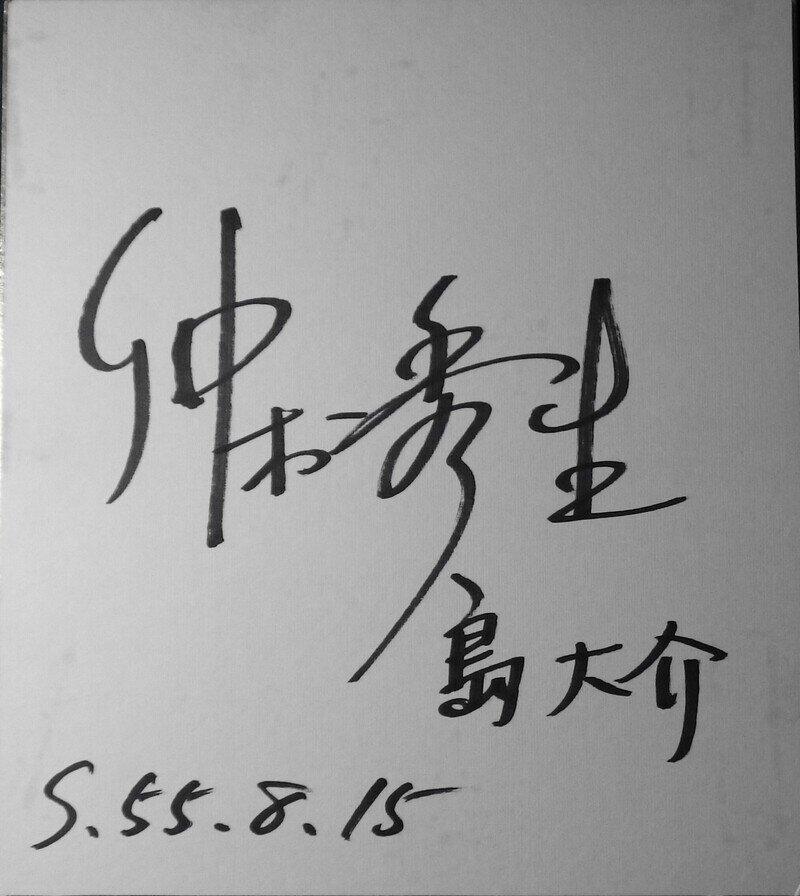 仲村秀生
島大介
S.55.8.15